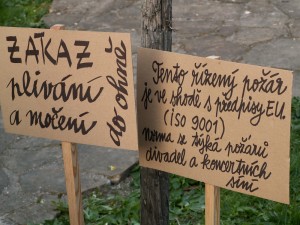 ZÁKAZ
plivání
a močení
do ohně
Tento řízený požár
je ve shodě s předpisy EU.
(ISO 9001)
nemá se týká požárů
divadel a koncertních
síní